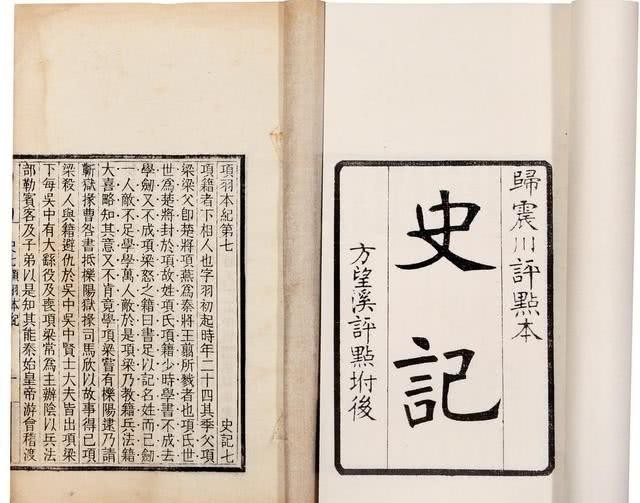 歸震川評點本
史記
方望溪評點坿後
項羽本紀第七 史記七
項籍者下相人也字羽初起時年二十四其季父項
梁梁父卽楚將項燕爲秦將王翦所戮者也項氏世
世爲楚將封於項故姓項氏項籍少時學書不成去
學劒又不成項梁怒之籍曰書足以記名姓而已劒
一人敵不足學學萬人敵於是項梁乃教籍兵法籍
大喜略知其意又不肯竟學項梁嘗有櫟陽逮乃請
蘄獄掾曹咎書抵櫟陽獄掾司馬欣以故事得已項
梁殺人與籍避仇於吳中吳中賢士大夫皆出項梁
下每吳中有大繇役及喪項梁常爲主辦陰以兵法
部勒賓客及子弟以是知其能秦始皇帝游會稽渡
項羽本紀